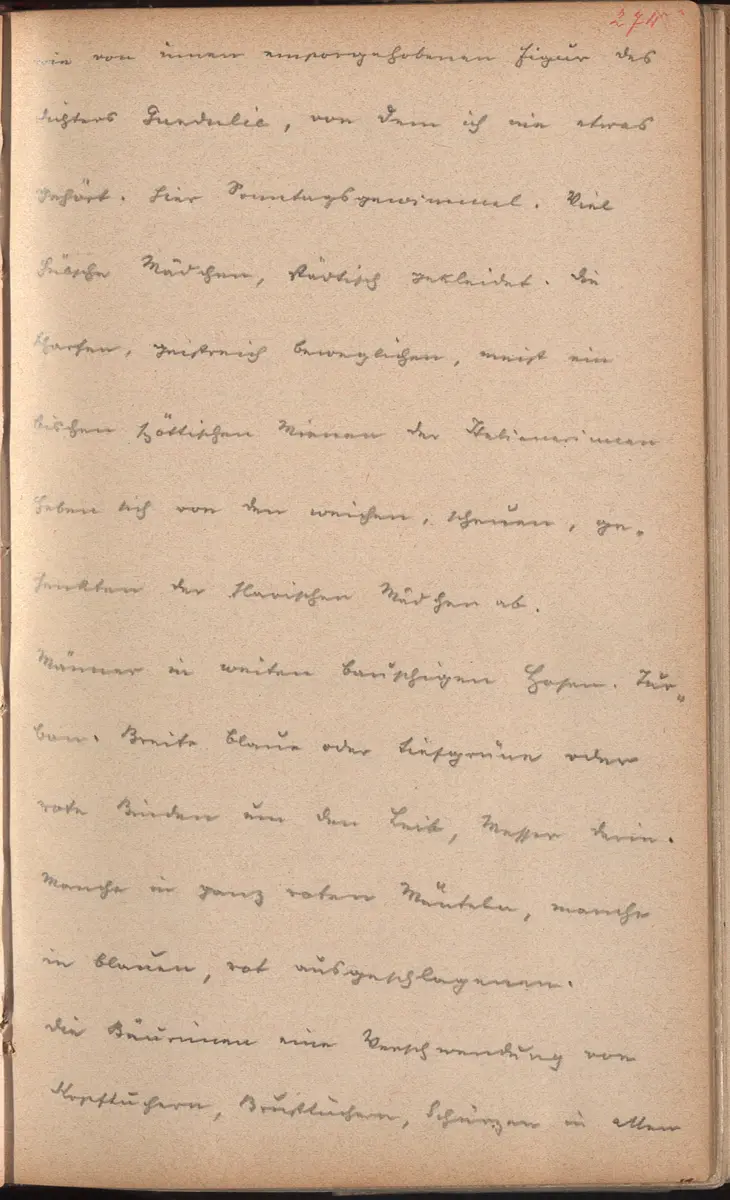 274
wie von innen emporgehobenen Figur des
Dichters Gundulic, von dem ich nie etwas
gehört. Hier Sonntagsgewimmel. Viel
hübsche Mädchen, städtisch gekleidet. Die
scharfen, geistreich beweglichen, meist ein
bischen spöttischen Mienen der Italienerinnen
heben sich von den weichen, scheuen, ge-
senkten der slavischen Mädchen ab.
Männer in weiten bauschigen Hosen. Tur-
ban. Breite blaue oder tiefgrüne oder
rote Binden um den Leib, Messer darin.
Manche in ganz roten Mänteln, manche
in blauen, rot ausgeschlagenen.
Die Bäurinnen eine Verschwendung von
Kopftüchern, Brusttüchern, Schürzen in allen